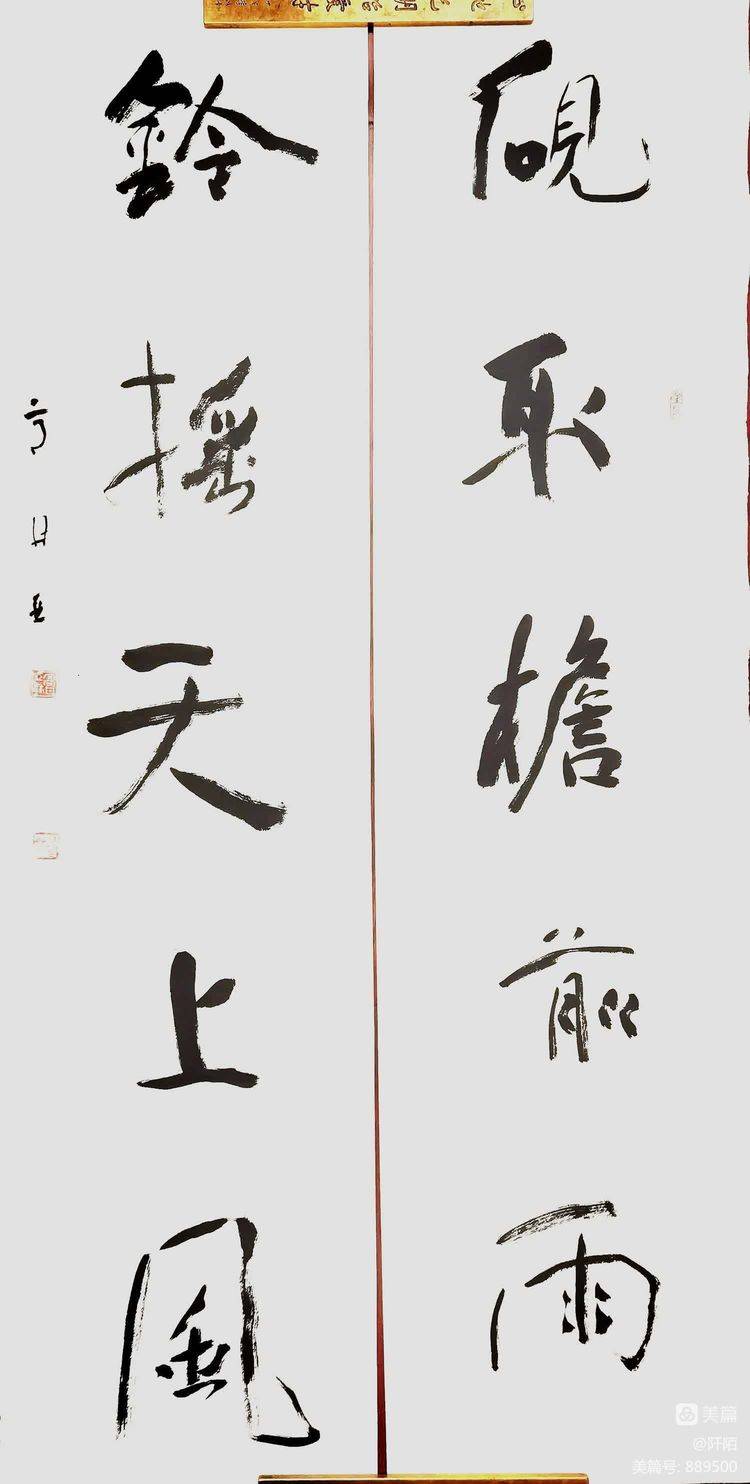 硯取檐前雨
鈴搖天上風
美篇
@阡陌
美篇号: 889500